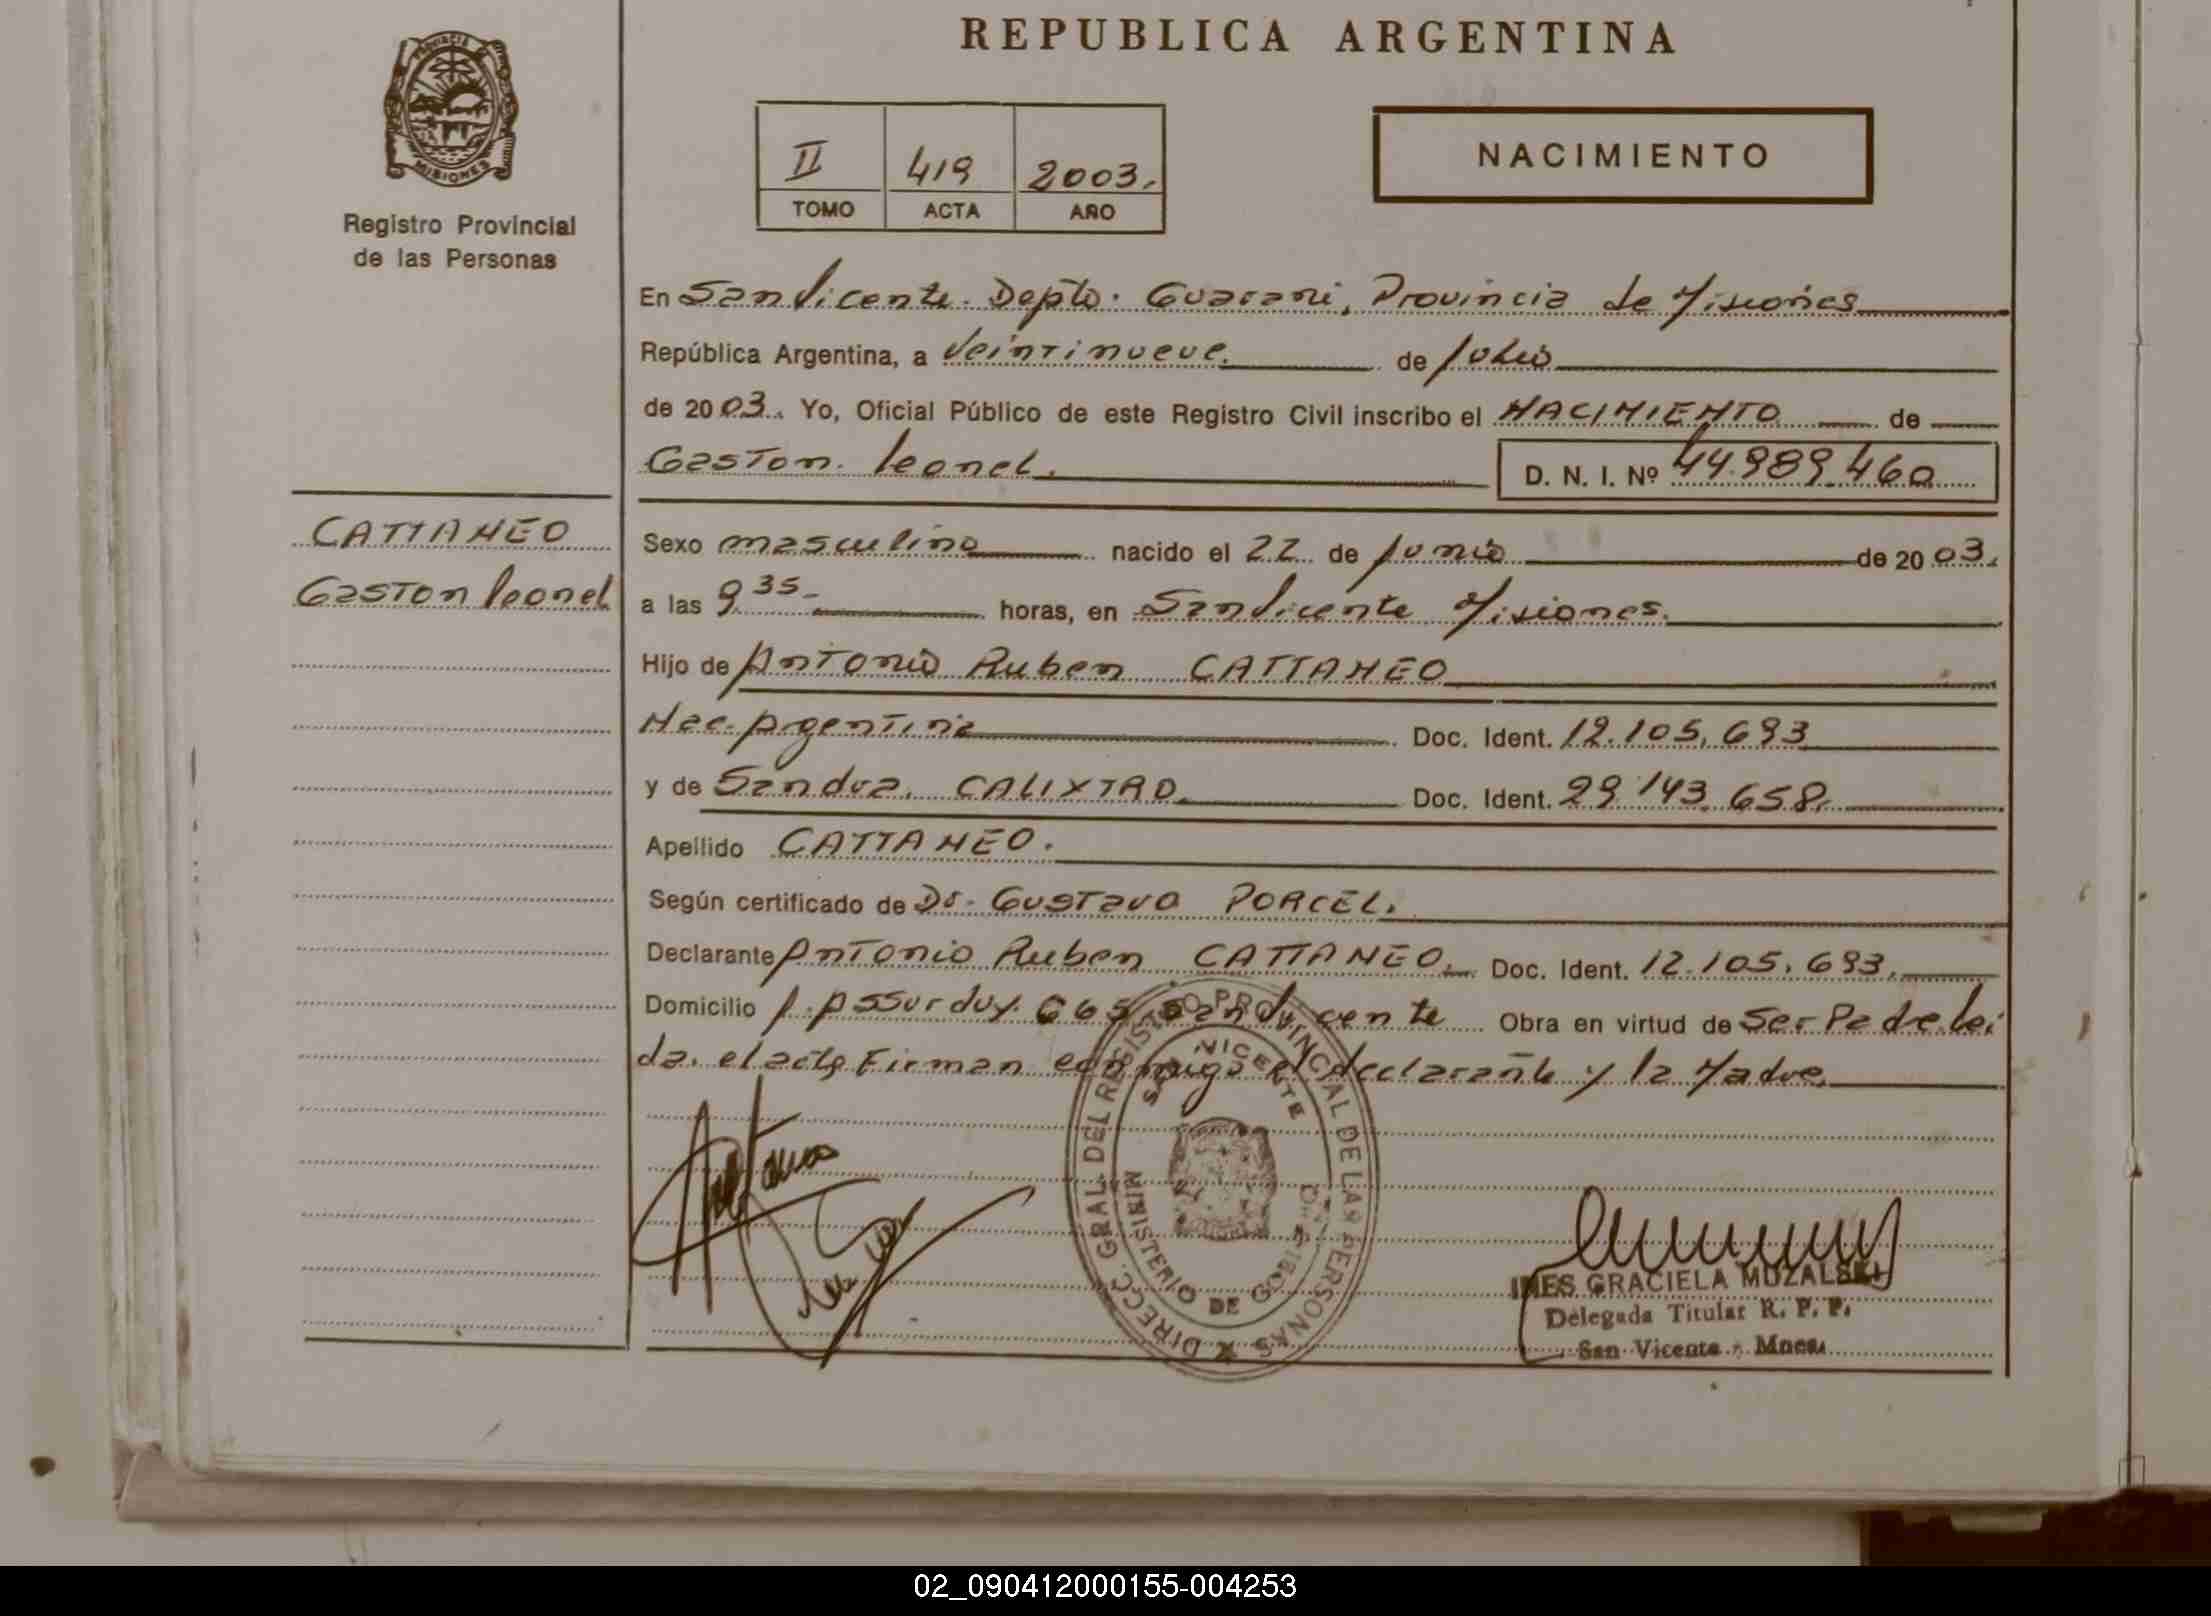 REPUBLICA ARGENTINA
PROVINCIA DE MISIONES
Registro Provincial
de las Personas
II 419 2003.
TOMO ACTA AÑO
NACIMIENTO
En San Vicente. Depto. Guarani, Provincia de Misiones
República Argentina, a Veintinueve. de Julio
de 20 03. Yo, Oficial Público de este Registro Civil inscribo el NACIMIENTO de
Gaston. Leonel. D. N. I. Nº 44.989.460
CATTANEO
Gaston Leonel
Sexo masculino nacido el 22 de Junio de 20 03.
a las 9 35 - horas, en San Vicente Misiones.
Hijo de Antonio Ruben CATTANEO
Nac. Argentina Doc. Ident. 12.105.693
y de Sandra. CALIXTRO Doc. Ident. 29.143.658.
Apellido CATTANEO.
Según certificado de Dr. Gustavo PORCEL.
Declarante Antonio Ruben CATTANEO. Doc. Ident. 12.105.693.
Domicilio J. Assurduy. 665 San Vicente Obra en virtud de Ser Padre. lei
da. el acta Firman conmigo el declarante y la Madre.
DIRECC. GRAL. DEL REGISTRO PROVINCIAL DE LAS PERSONAS
SAN VICENTE
MINISTERIO DE GOBIERNO
INES GRACIELA MUZALSKI
Delegada Titular R. P. P.
San Vicente - Mnes.
02_090412000155-004253